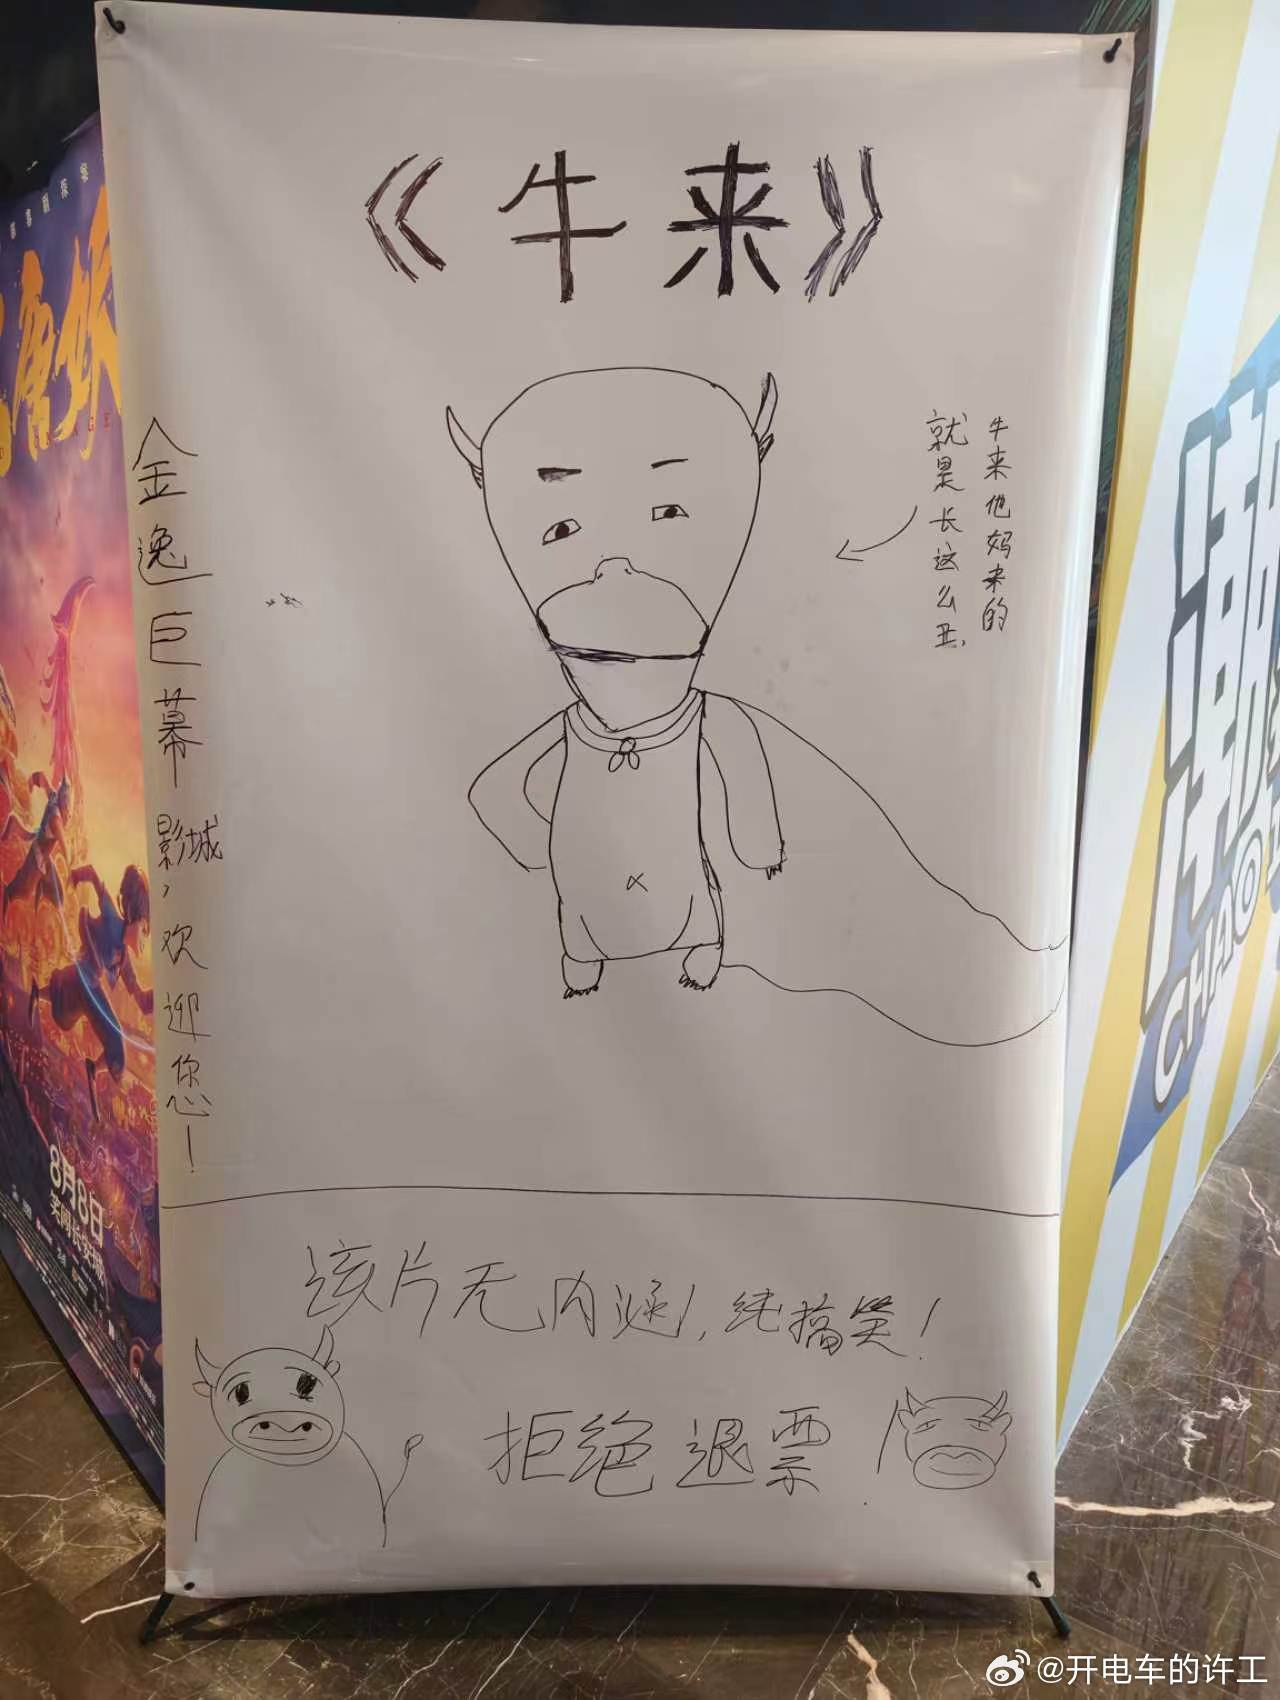 《牛来》
牛来他妈来的
就是长这么丑.
金逸巨幕影城,欢迎您!
该片无内涵,纯搞笑!
拒绝退票!
8月8日
笑闹长安城
潮
CHAO
@开电车的许工